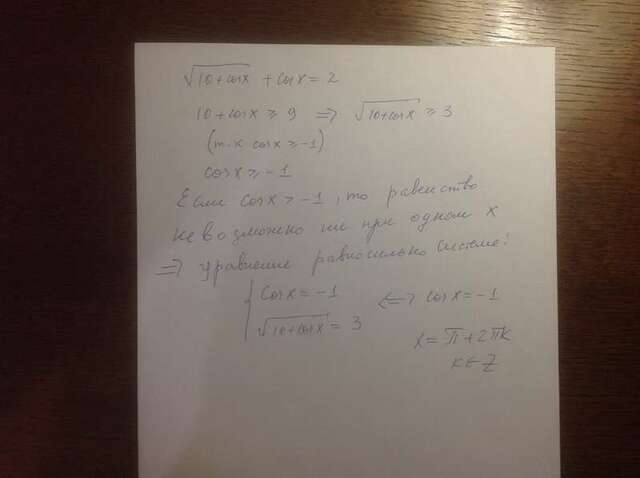 √10+cosx + cosx = 2
10+cosx ≥ 9 ⇒ √10+cosx ≥ 3
(т.к cosx ≥ -1)
cosx ≥ -1
Если cosx > -1, то равенство
невозможно ни при одном x
⇒ уравнение равносильно системе:
{ cosx = -1 ⇔ cosx = -1
√10+cosx = 3
x = π + 2πk
k ∈ Z